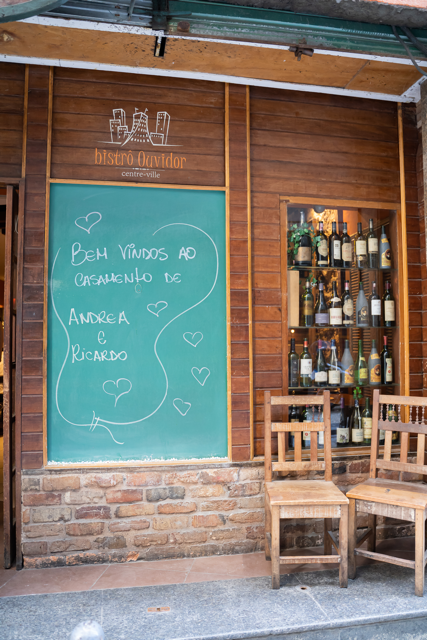 bistrô Ouvidor
centre-ville
BEM VINDOS AO
CASAMENTO DE
ANDREA
E
RICARDO